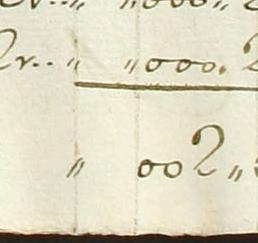 „ „000„ 2
2r.. „ „000. 2
„ 002 „